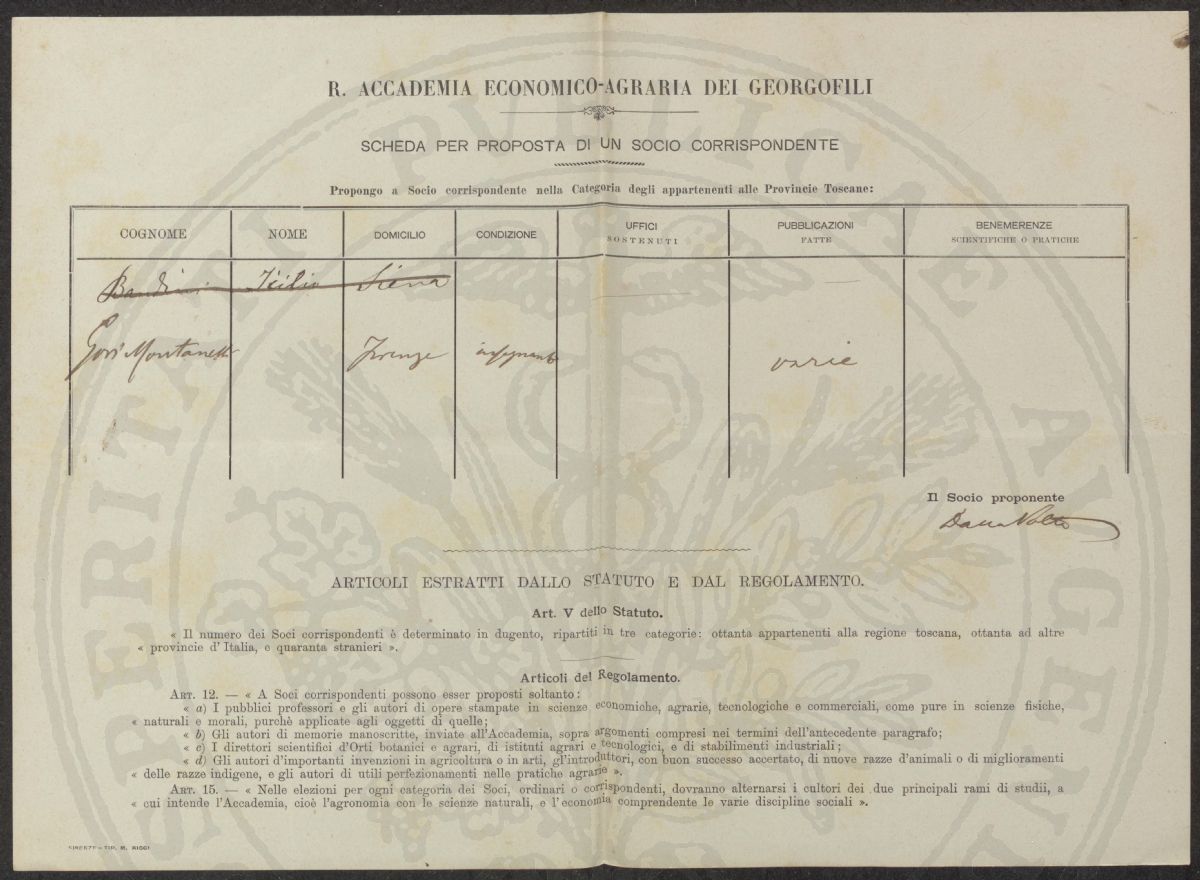 R. ACCADEMIA ECONOMICO-AGRARIA DEI GEORGOFILI
SCHEDA PER PROPOSTA DI UN SOCIO CORRISPONDENTE
Propongo a Socio corrispondente nella Categoria degli appartenenti alle Provincie Toscane:
COGNOME NOME DOMICILIO CONDIZIONE UFFICI SOSTENUTI PUBBLICAZIONI FATTE BENEMERENZE SCIENTIFICHE O PRATICHE
Bandini Icilio Siena
Gori Montanelli Firenze insegnante varie
Il Socio proponente
Dalla Volta
ARTICOLI ESTRATTI DALLO STATUTO E DAL REGOLAMENTO.
Art. V dello Statuto.
« Il numero dei Soci corrispondenti è determinato in dugento, ripartiti in tre categorie: ottanta appartenenti alla regione toscana, ottanta ad altre
« provincie d' Italia, e quaranta stranieri ».
Articoli del Regolamento.
ART. 12. — « A Soci corrispondenti possono esser proposti soltanto:
« a) I pubblici professori e gli autori di opere stampate in scienze economiche, agrarie, tecnologiche e commerciali, come pure in scienze fisiche,
« naturali e morali, purchè applicate agli oggetti di quelle;
« b) Gli autori di memorie manoscritte, inviate all'Accademia, sopra argomenti compresi nei termini dell'antecedente paragrafo;
« c) I direttori scientifici d'Orti botanici e agrari, di istituti agrari e tecnologici, e di stabilimenti industriali;
« d) Gli autori d'importanti invenzioni in agricoltura o in arti, gl'introduttori, con buon successo accertato, di nuove razze d'animali o di miglioramenti
« delle razze indigene, e gli autori di utili perfezionamenti nelle pratiche agrarie ».
ART. 15. — « Nelle elezioni per ogni categoria dei Soci, ordinari o corrispondenti, dovranno alternarsi i cultori dei due principali rami di studii, a
« cui intende l'Accademia, cioè l'agronomia con le scienze naturali, e l'economia comprendente le varie discipline sociali ».
FIRENZE - TIP. M. RICCI
PROSPERITATI PUBLICAE AUGENDAE